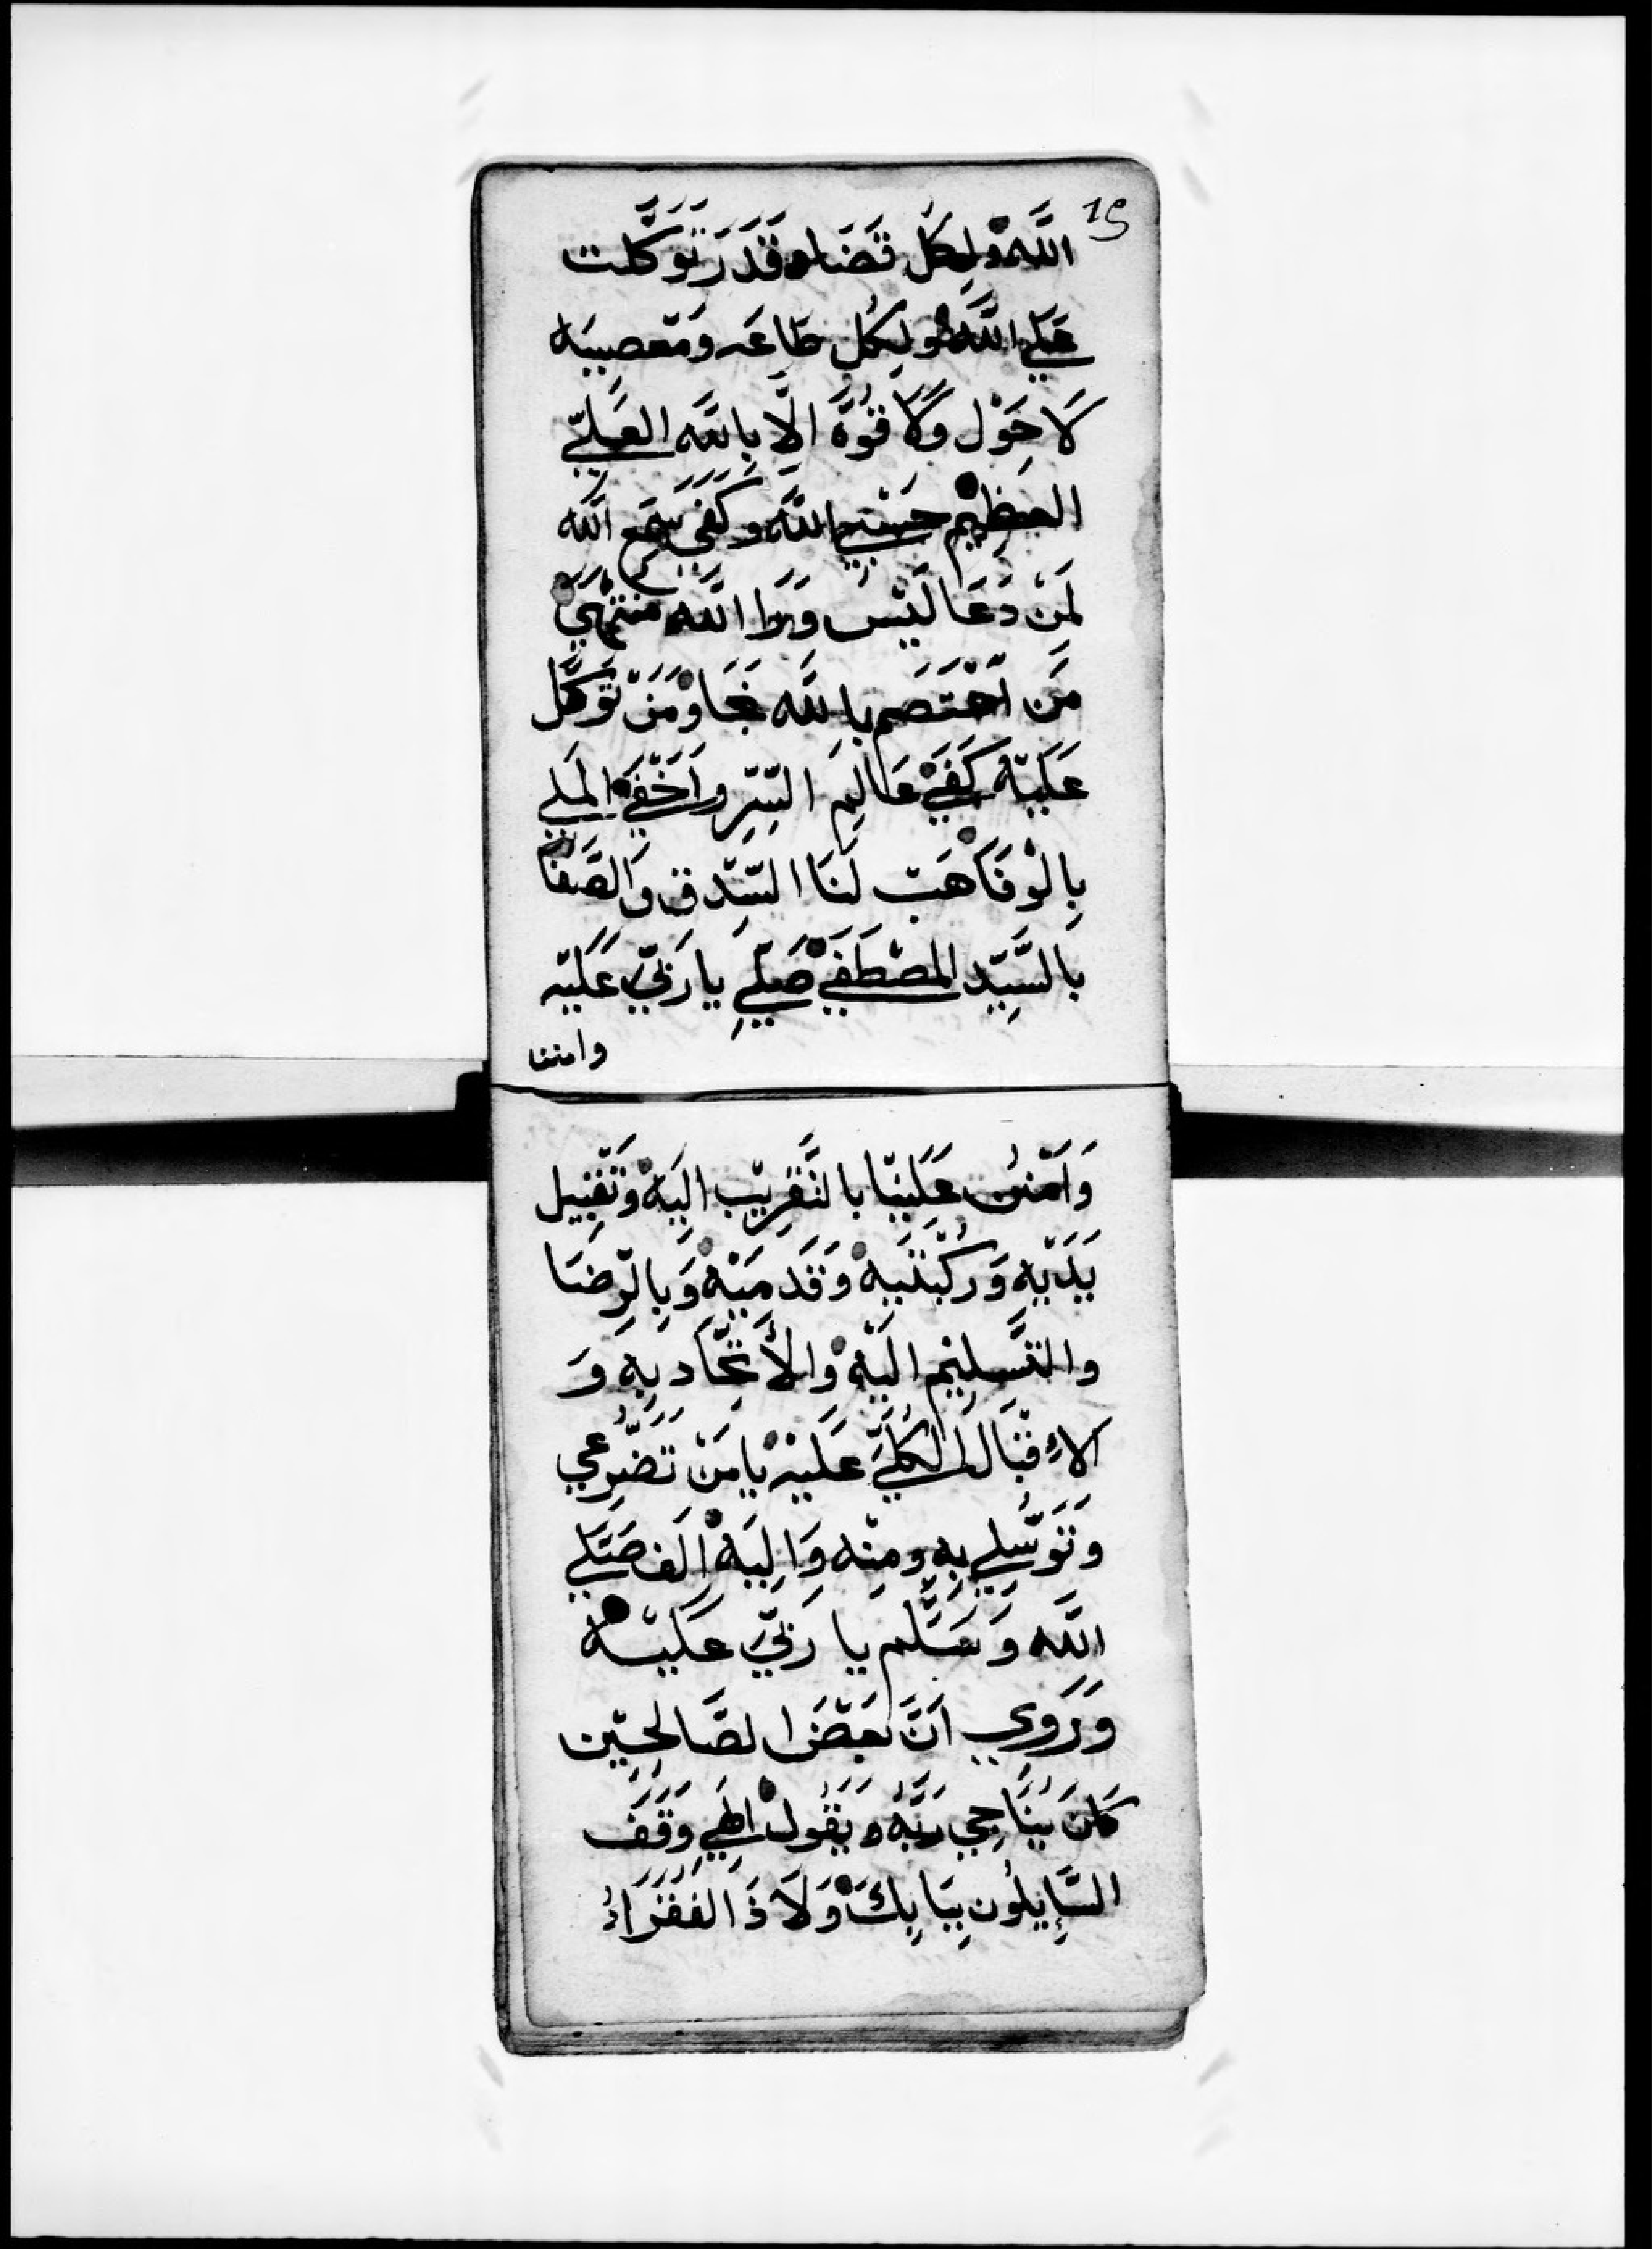 19
اللَّه وَلِكُل قَضَاء قَدَر تَوَكَّلت
عَلي اللَّه ولِكُل طَاعَه وَمَعصيبَه
لَا حَوْل وَلَا قُوَّة اِلَّا بِاللَّه العَلِيّ
العظِيم حَسْبي اللَّه وَكَفَي سَمِعَ اللَّه
لِمَنْ دَعَا لَيْسَ وَرَا اللَّه مُنتَهَي
مَن اَعْتَصَم بِاللَّه نَجَا وَمَنْ تَوَكَّل
عَلَيْه كَفَي عَالِم السِّرّ وَاَخْفَي المَلي
بِالوَفَا هَبْ لَنَا السِّدق وَالصَّفَا
بالسَّيِّد المصْطَفَي صَلِّي يا رَبّي عَلَيْه
وامننا
وَاَمْنُن عَلَيْنَا بالتَّقرِيْب الَيْه وَتَقْبِيل
يَدَيْه وَرُكْبَتَيْه وَقَدَمَيْه وَبِالرِّضَا
والتَّسلِيْم الَيْه وَالاَتِّحَاد بِه وَ
الاِقْبَال الكُلِّيّ عَلَيْه يا مَنْ تَضَرُّعي
وَتَوَسُّلي بِه ومِنْه وَاِلَيْه اَلف صَلّي
اللَّه وَسَلَّم يا رَبّي عَلَيْه
وَرَوي اَنَّ بَعْضَ الصَّالِحِيْن
كَانَ يُنَاجي رَبَّهُ وَيَقُول اِلَهي وَقَفَ
السَّايِلُون بِبَابِكَ وَلَاذَ الفُقَرَاءُ